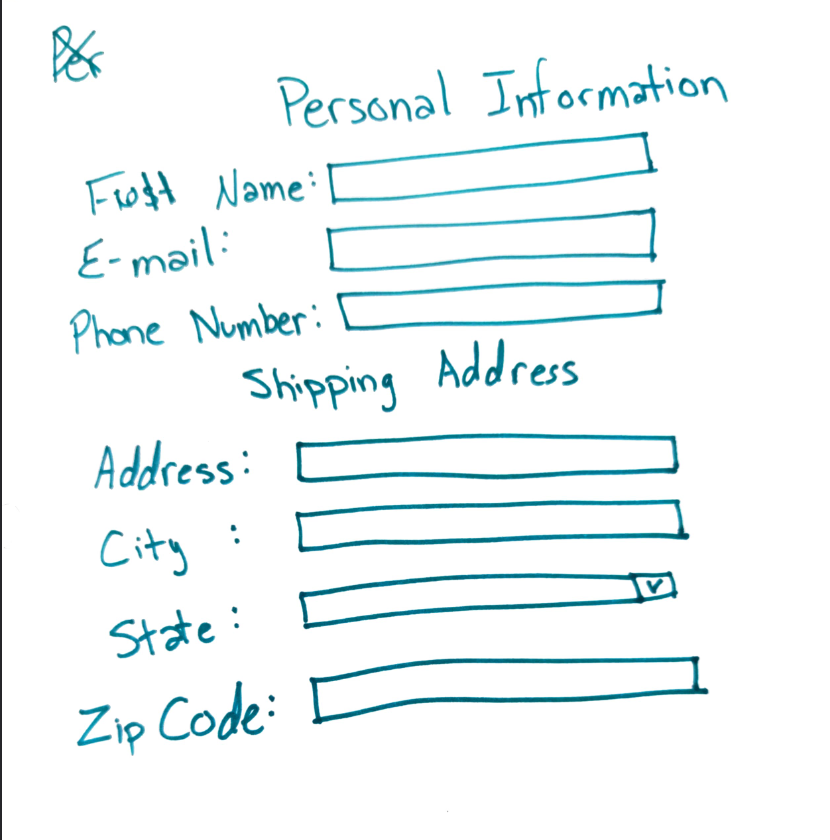 Per
Personal Information
Name:
E-mail:
Phone Number:
Shipping Address
Address:
City :
State:
Zip Code: